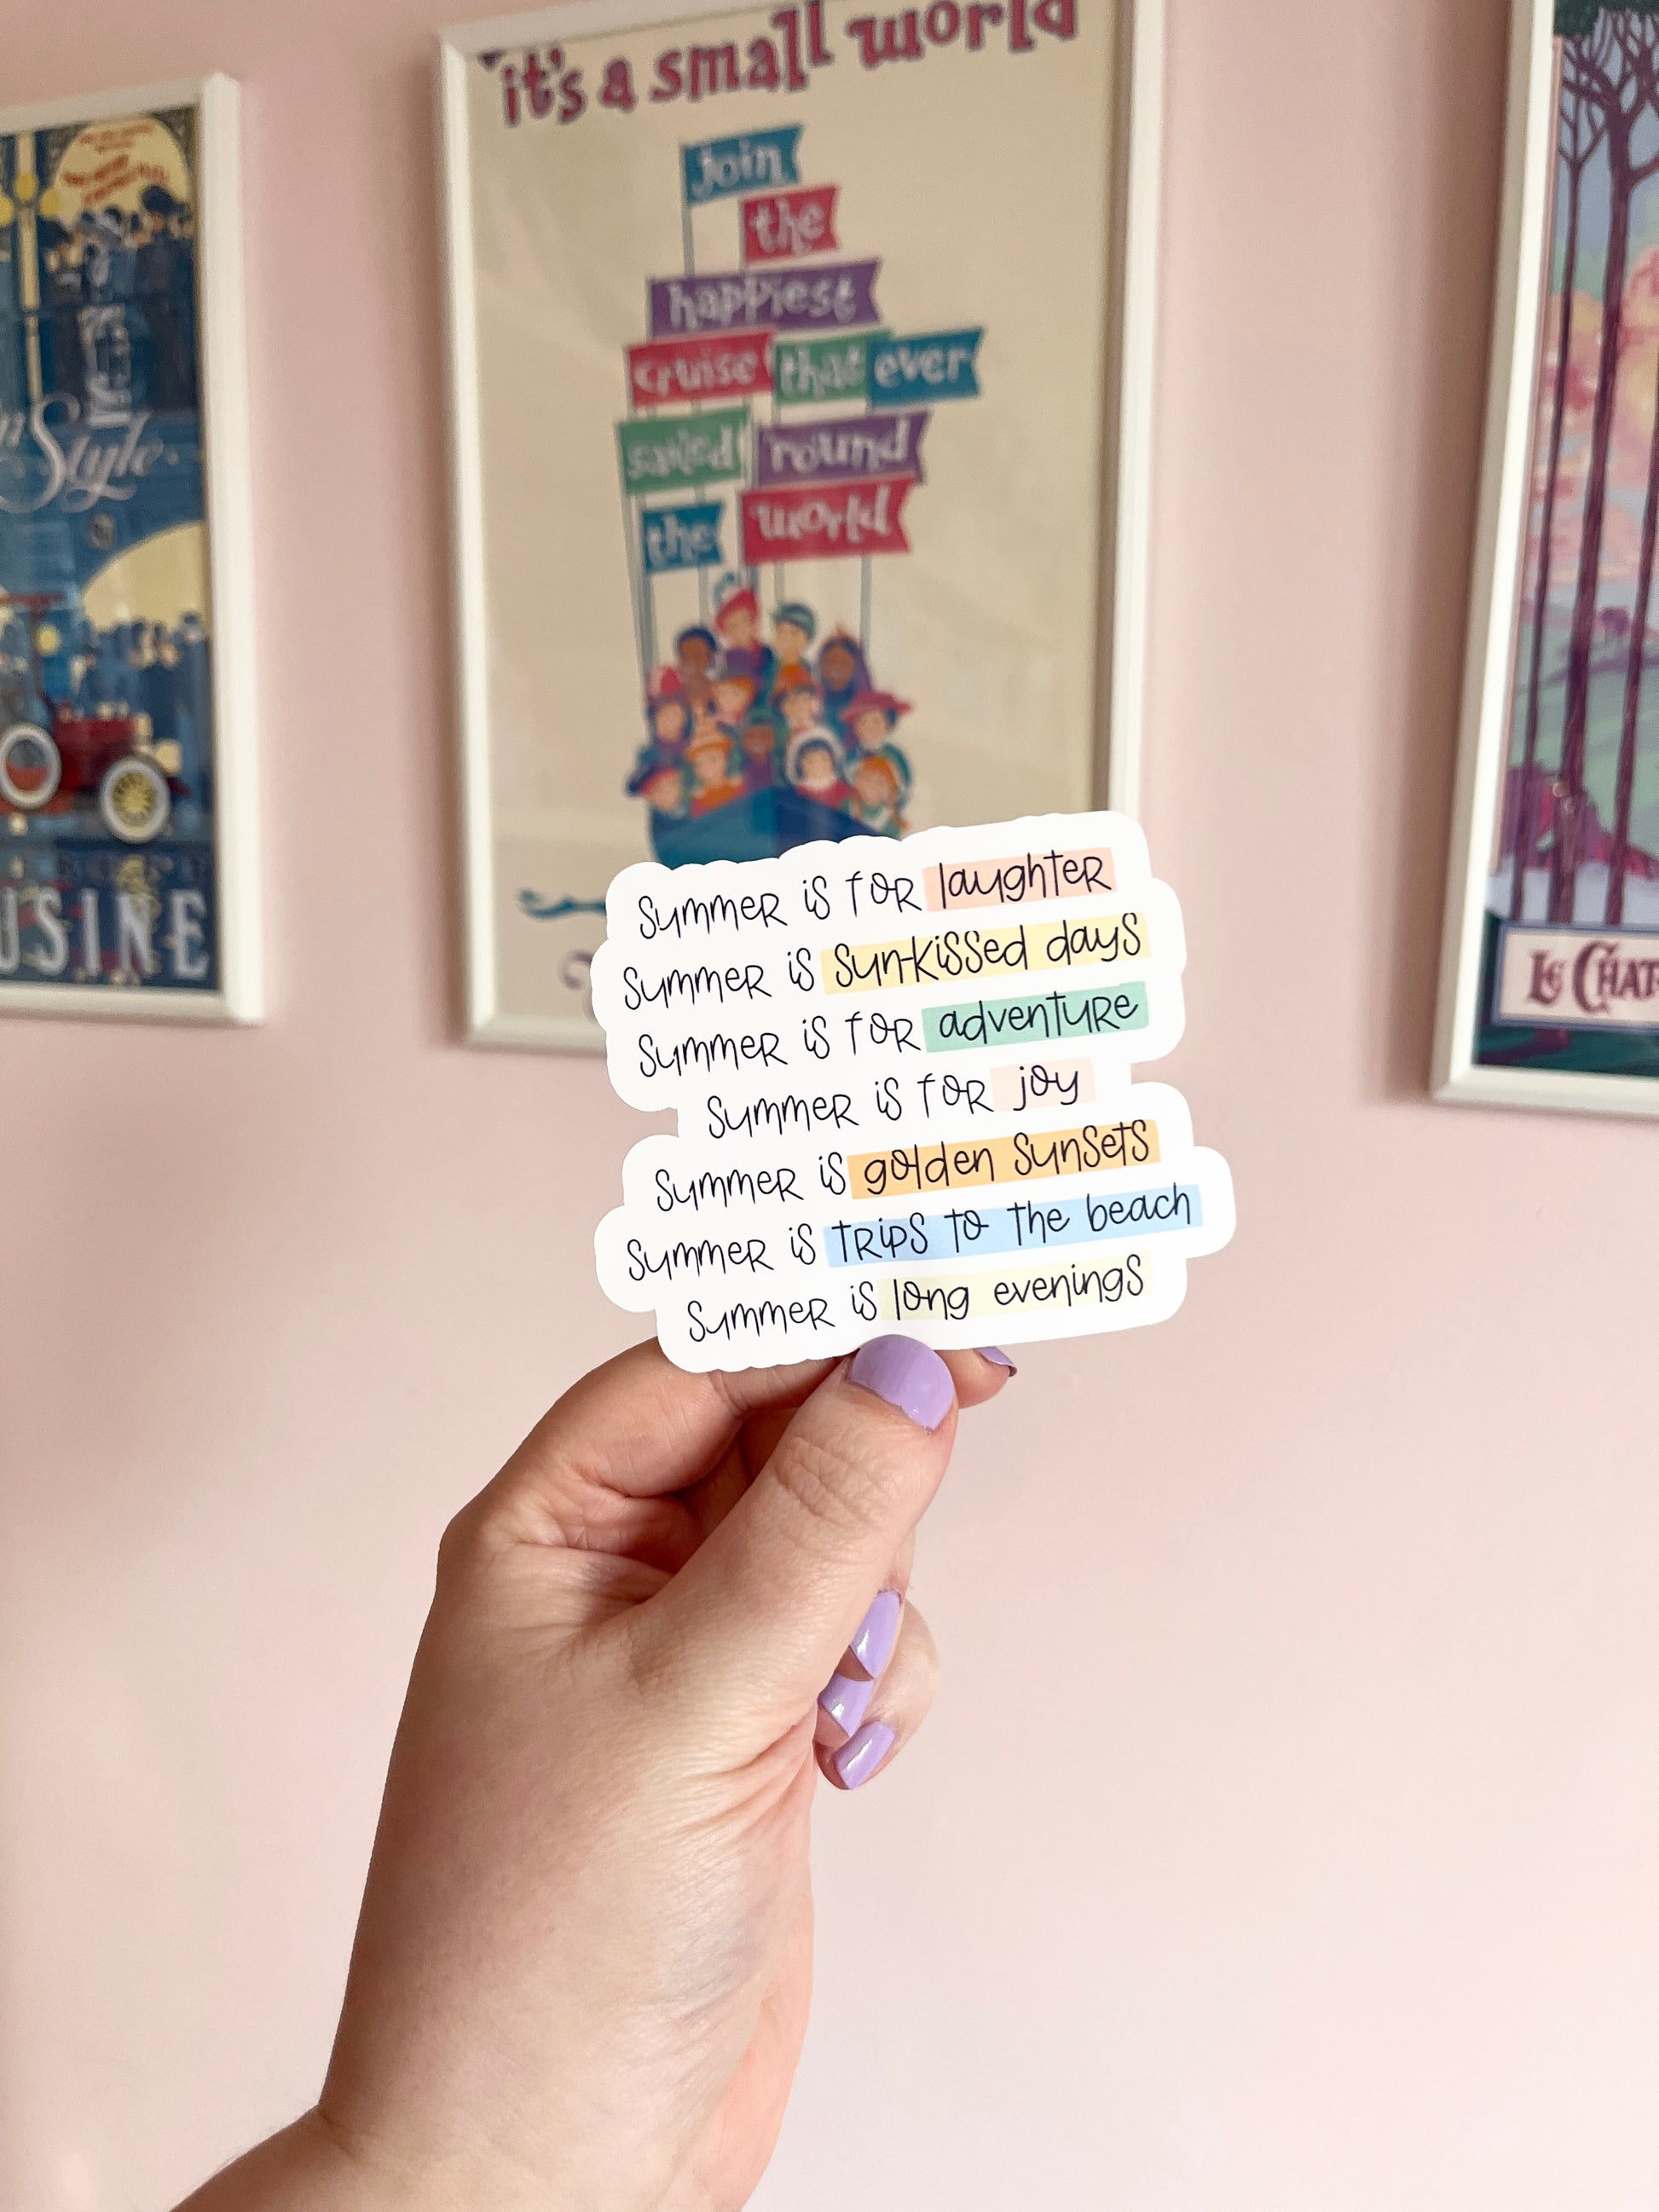 it's a small world
join
the
happiest
cruise that ever
sailed 'round
the world
Style
USINE
Le CHAT
Summer is for laughter
Summer is sun-kissed days
Summer is for adventure
Summer is for joy
Summer is golden sunsets
Summer is trips to the beach
Summer is long evenings